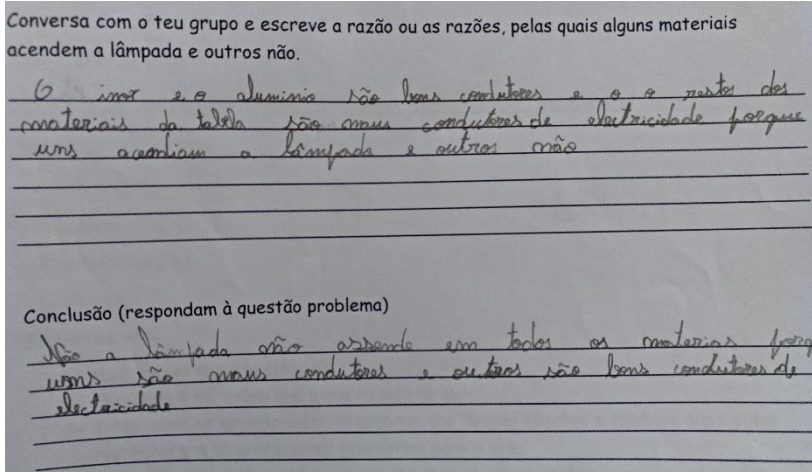 Conversa com o teu grupo e escreve a razão ou as razões, pelas quais alguns materiais
acendem a lâmpada e outros não.
O inox e o aluminio são bons condutores e o o restos dos
materiais da tabela são maus condutores de electricidade porque
uns acendiam a lâmpada e outros não
Conclusão (respondam à questão problema)
Não a lâmpada não assende em todos os materias porq
uns são maus condutores e outros são bons condutores de
electricidade